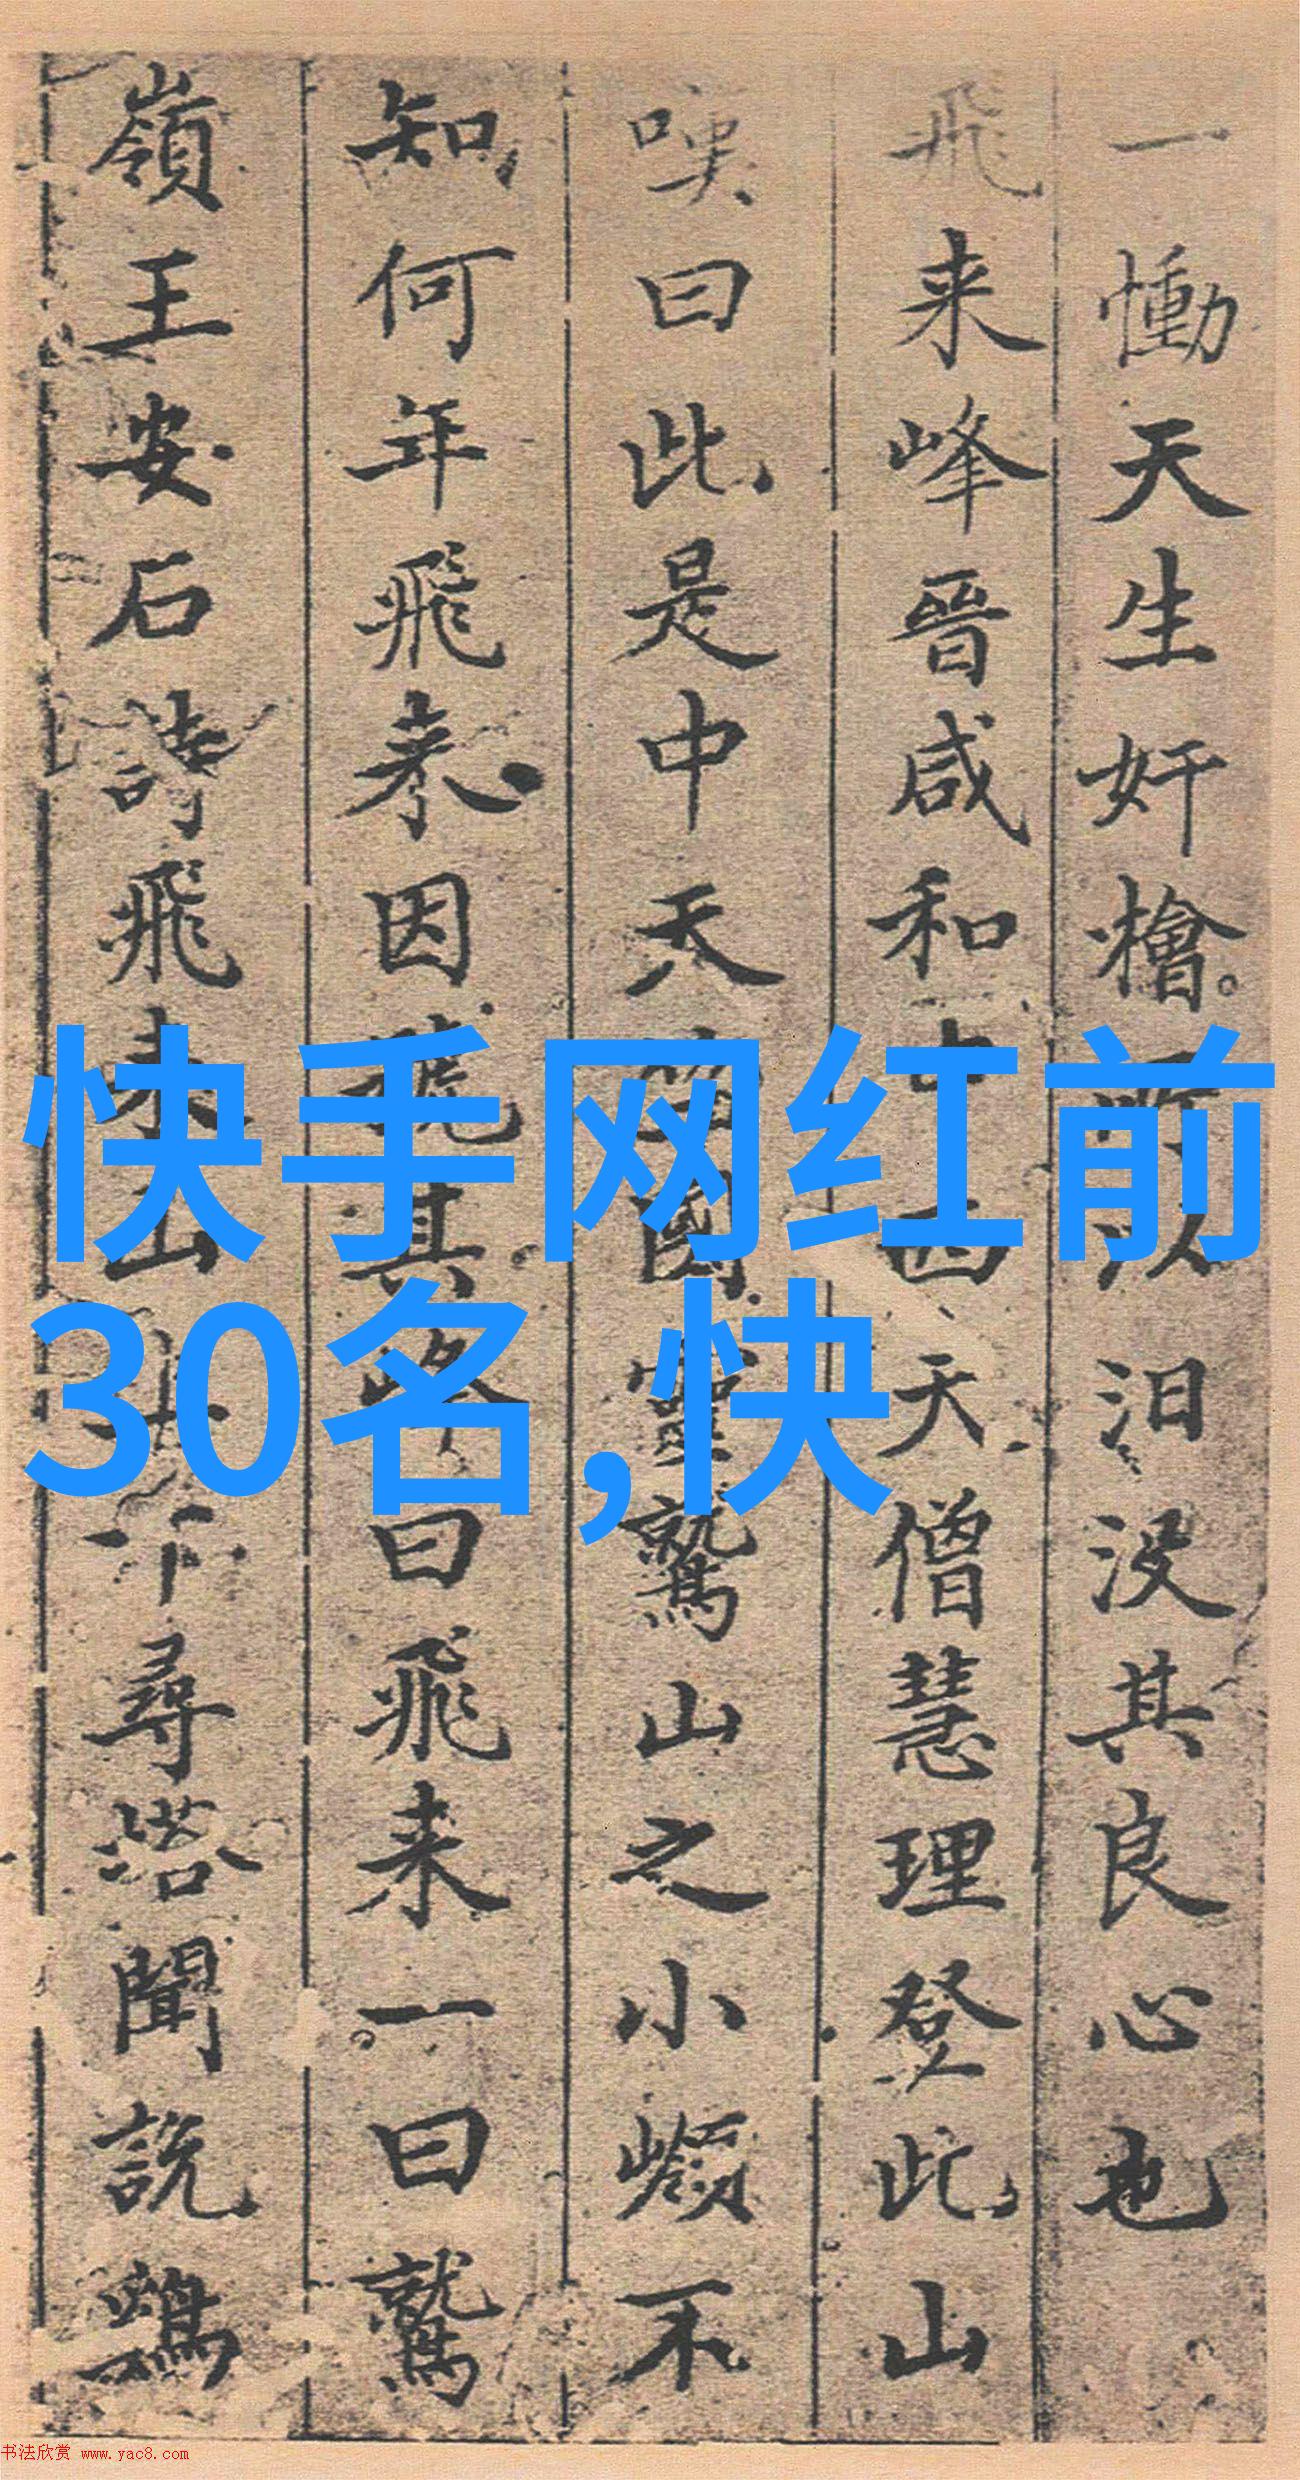 一慟天生奸檜所以汨没其良心也
飛来峰晉咸和中西天僧慧理登此山
嘆曰此是中天竺國靈鷲山之小嶺不
知何年飛来因號其峰曰飛来一曰鷲
嶺王安石詩飛来山上千尋塔聞說鷄
快手网红前
30名,快
书法欣赏 www.yac8.com